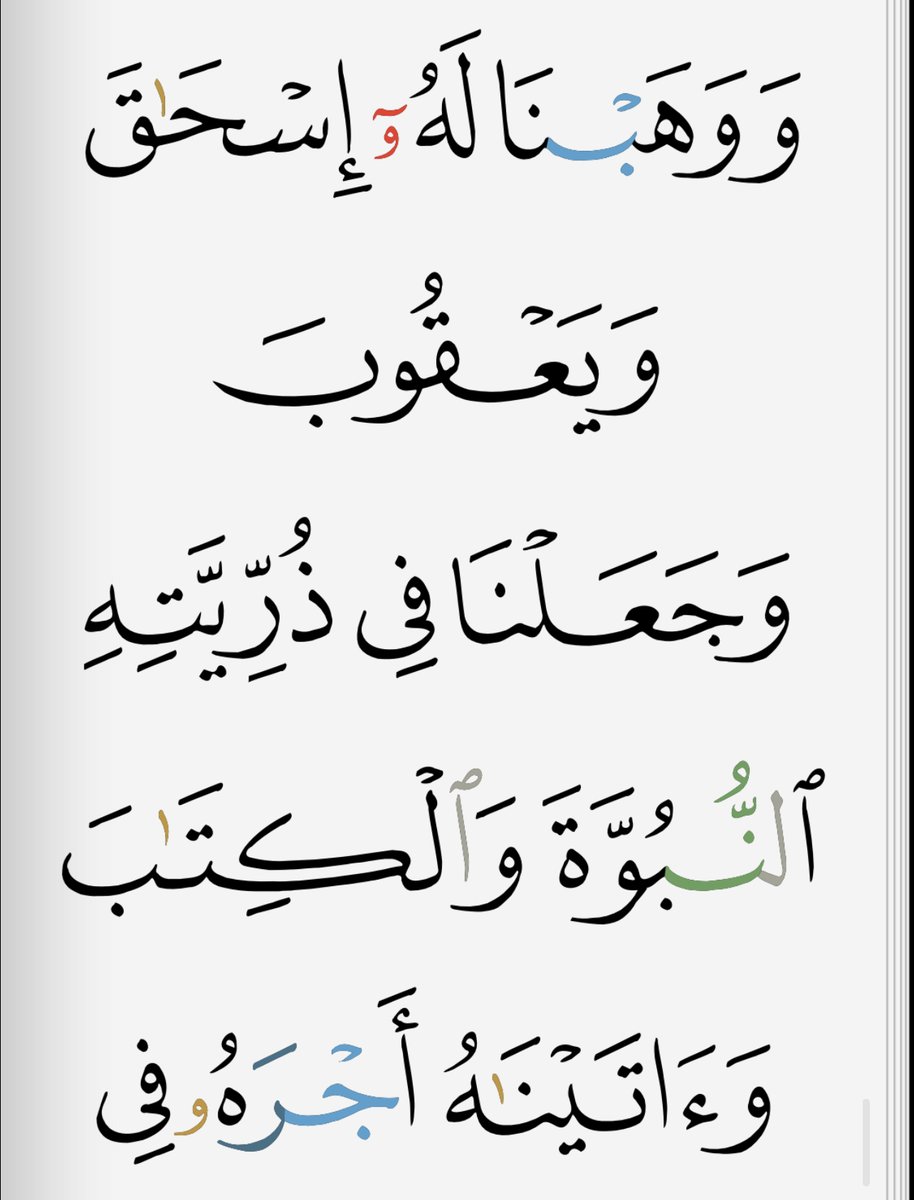 وَوَهَبْنَا لَهُۥٓ إِسْحَٰقَ
وَيَعْقُوبَ
وَجَعَلْنَا فِى ذُرِّيَّتِهِ
ٱلنُّبُوَّةَ وَٱلْكِتَٰبَ
وَءَاتَيْنَٰهُ أَجْرَهُۥ فِى